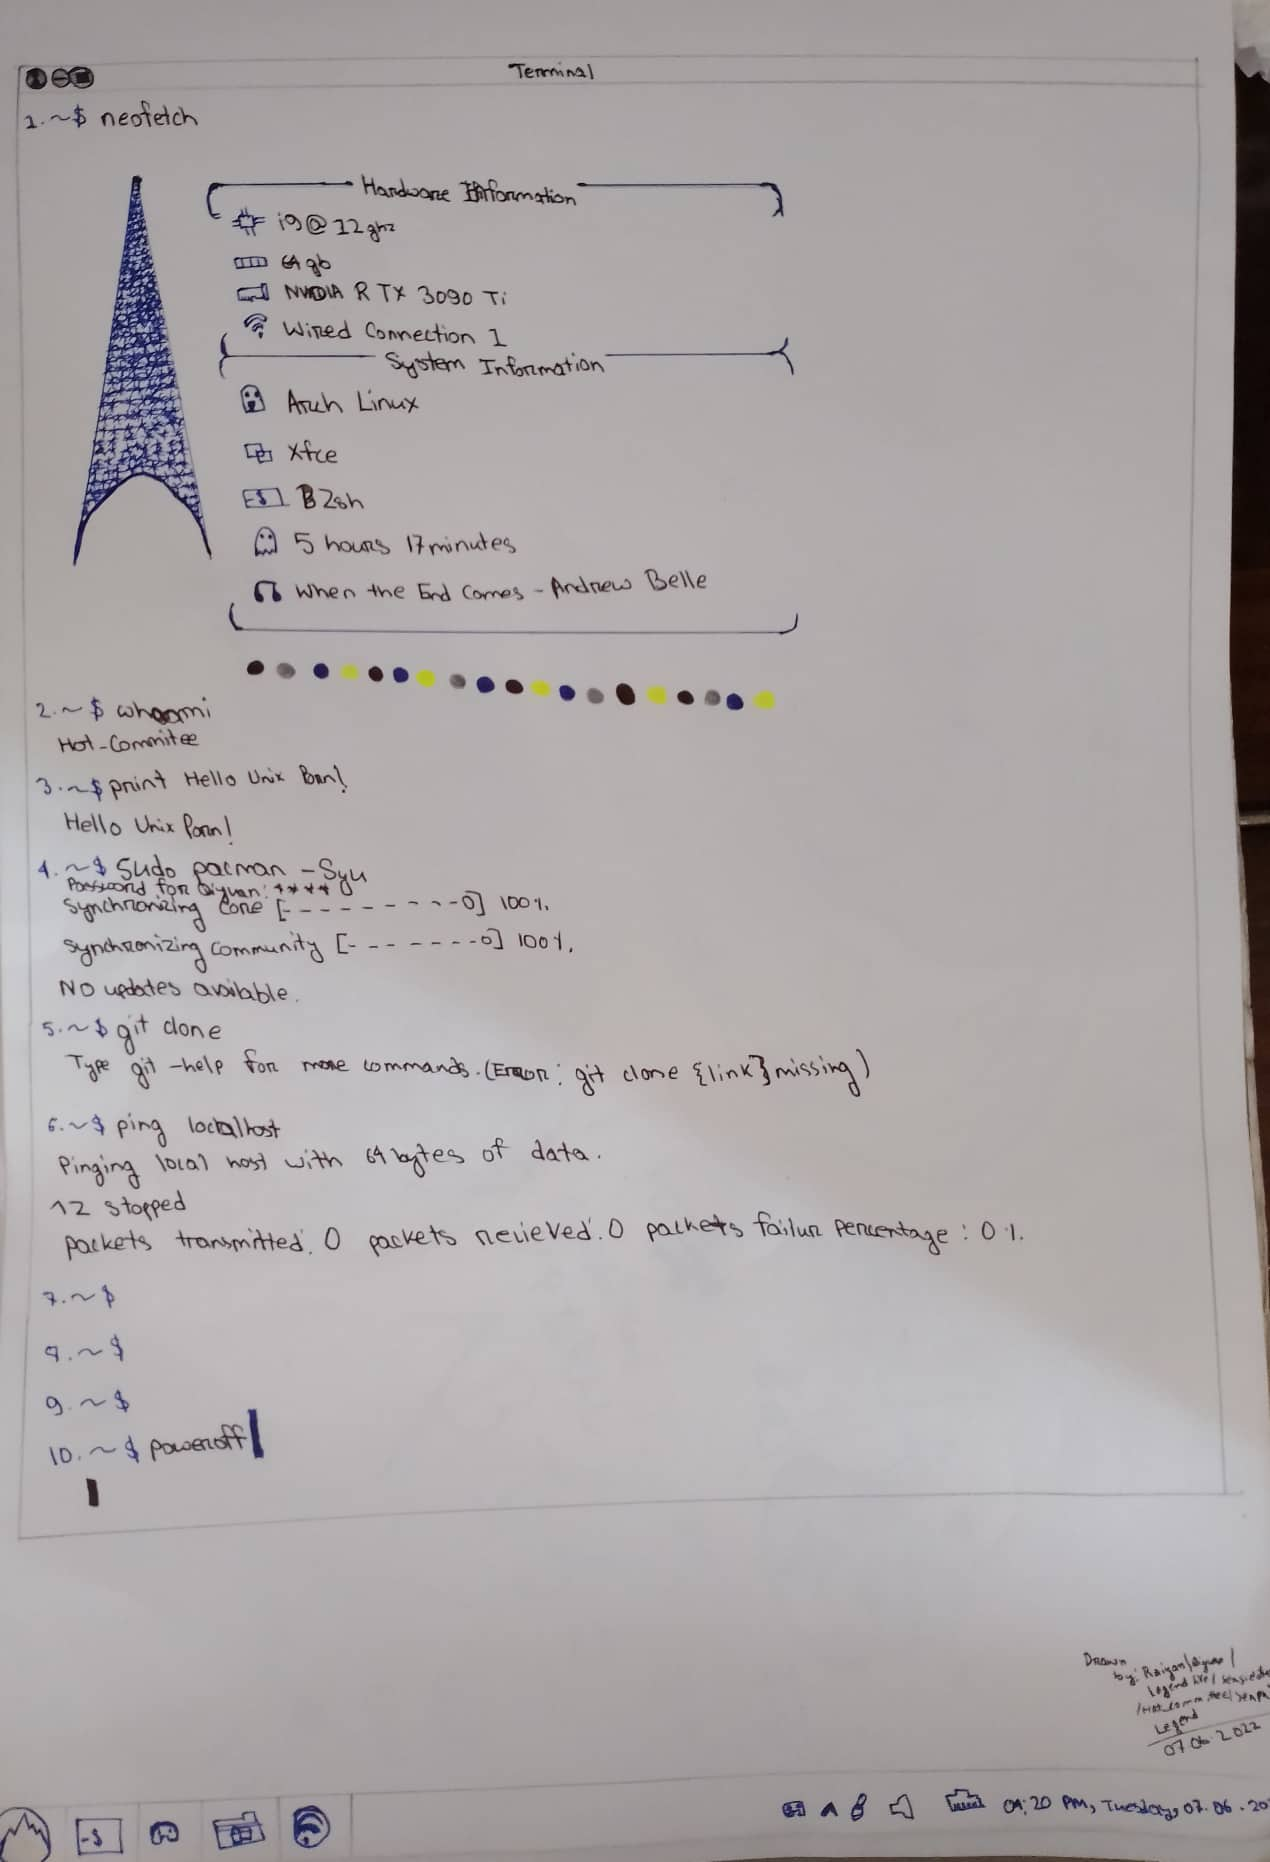 Terminal
1. ~$ neofetch
Hardware Information
i9@12ghz
64 gb
NVIDIA RTX 3090 Ti
Wired Connection 1
System Information
Arch Linux
Xfce
-$ BZsh
5 hours 17minutes
When the End Comes - Andrew Belle
2. ~$ whoami
Hot-Commitee
3. ~$ print Hello Unix Porn!
Hello Unix Porn!
4. ~$ Sudo pacman -Syu
Password for : ****
Synchronizing Core [- - - - - - - - -O] 100%.
Synchronizing community [- - - - - - - -O] 100%.
No updates available.
5. ~$ git clone
Type git -help for more commands. (Error: git clone {link} missing)
6. ~$ ping localhost
Pinging local host with 64 bytes of data.
^Z stopped
packets transmitted: 0 packets recieved: 0 packets failur percentage: 0%.
7. ~$
9. ~$
9. ~$
10. ~$ poweroff
Drawn
by: Raiyan/
Legend
/Hot_commitee/
Legend
07 06 2022
-$ 04:20 PM, Tuesday, 07.06.20